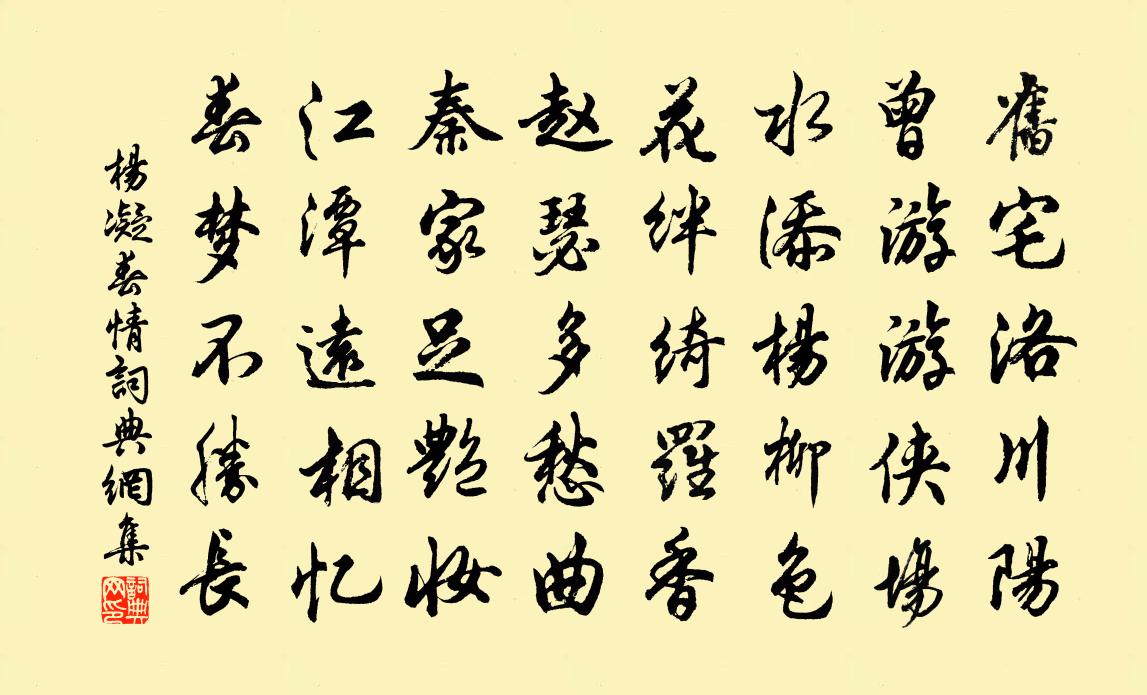 舊宅洛川陽
曾游游侠場
水添楊柳色
花絆綺羅香
赵瑟多愁曲
秦家足艷妆
江潭遠相忆
春梦不勝長
楊凝春情詞典網集
詞典网印